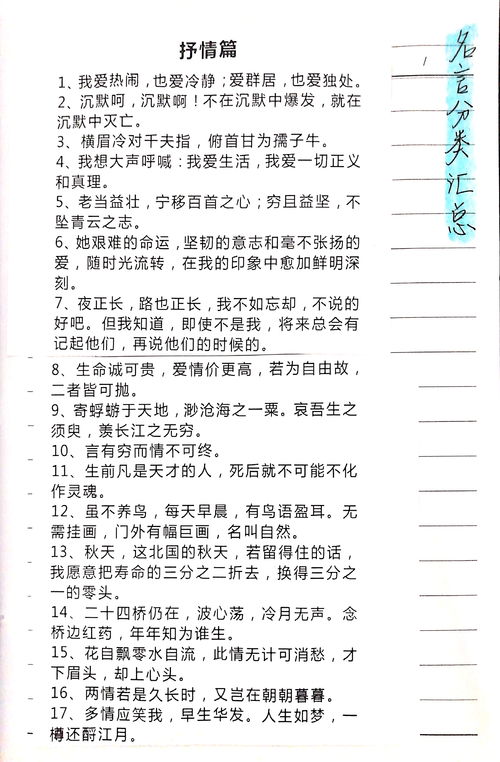 名言分类汇总
抒情篇
1、我爱热闹，也爱冷静；爱群居，也爱独处。
2、沉默呵，沉默啊！不在沉默中爆发，就在
沉默中灭亡。
3、横眉冷对千夫指，俯首甘为孺子牛。
4、我想大声呼喊：我爱生活，我爱一切正义
和真理。
5、老当益壮，宁移百首之心；穷且益坚，不
坠青云之志。
6、她艰难的命运，坚韧的意志和毫不张扬的
爱，随时光流转，在我的印象中愈加鲜明深
刻。
7、夜正长，路也正长，我不如忘却，不说的
好吧。但我知道，即使不是我，将来总会有
记起他们，再说他们的时候的。
8、生命诚可贵，爱情价更高，若为自由故，
二者皆可抛。
9、寄蜉蝣于天地，渺沧海之一粟。哀吾生之
须臾，羡长江之无穷。
10、言有穷而情不可终。
11、生前凡是天才的人，死后就不可能不化
作灵魂。
12、虽不养鸟，每天早晨，有鸟语盈耳。无
需挂画，门外有幅巨画，名叫自然。
13、秋天，这北国的秋天，若留得住的话，
我愿意把寿命的三分之二折去，换得三分之
一的零头。
14、二十四桥仍在，波心荡，冷月无声。念
桥边红药，年年知为谁生。
15、花自飘零水自流，此情无计可消愁，才
下眉头，却上心头。
16、两情若是久长时，又岂在朝朝暮暮。
17、多情应笑我，早生华发。人生如梦，一
樽还酹江月。